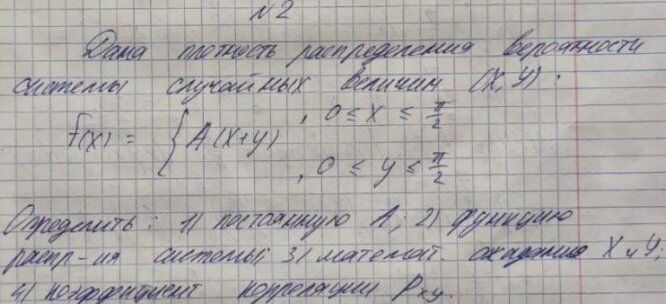 №2
Дана плотность распределения вероятности
системы случайных величин (X,Y):
f(x) = { A(x+y) , 0 ≤ x ≤ π/2
, 0 ≤ y ≤ π/2
Определить: 1) постоянную A; 2) функцию
распр-ия системы; 3) математ. ожидание X и Y;
4) коэффициент корреляции Pxy.